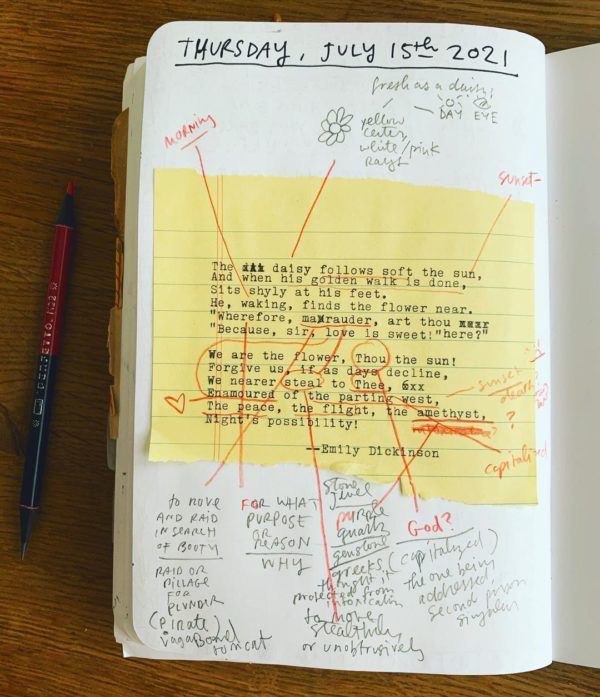 THURSDAY, JULY 15th 2021
fresh as a daisy,
DAY EYE
yellow
center
white/pink
rays
MORNING
sunset-
The xxx daisy follows soft the sun,
And when his golden walk is done,
Sits shyly at his feet.
He, waking, finds the flower near.
"Wherefore, marauder, art thou xxxx
"Because, sir, love is sweet!"here?"
We are the flower, Thou the sun!
Forgive us, if as days decline,
We nearer steal to Thee, xxx
Enamoured of the parting west,
The peace, the flight, the amethyst,
Night's possibility!
--Emily Dickinson
sunset
death?
?
capitalized
to move
AND RAID
IN SEARCH
OF BOOTY
RAID OR
PILLAGE
FOR
PLUNDER
(pirate)
vagabond
tomcat
FOR WHAT
PURPOSE
OR
REASON
WHY
stone
jewel
purple
quartz
gemstone
greeks
thought it
protected from
intoxication
to move
stealthily
or unobtrusively
God?
(capitalized)
the one being
addressed,
second person
singular